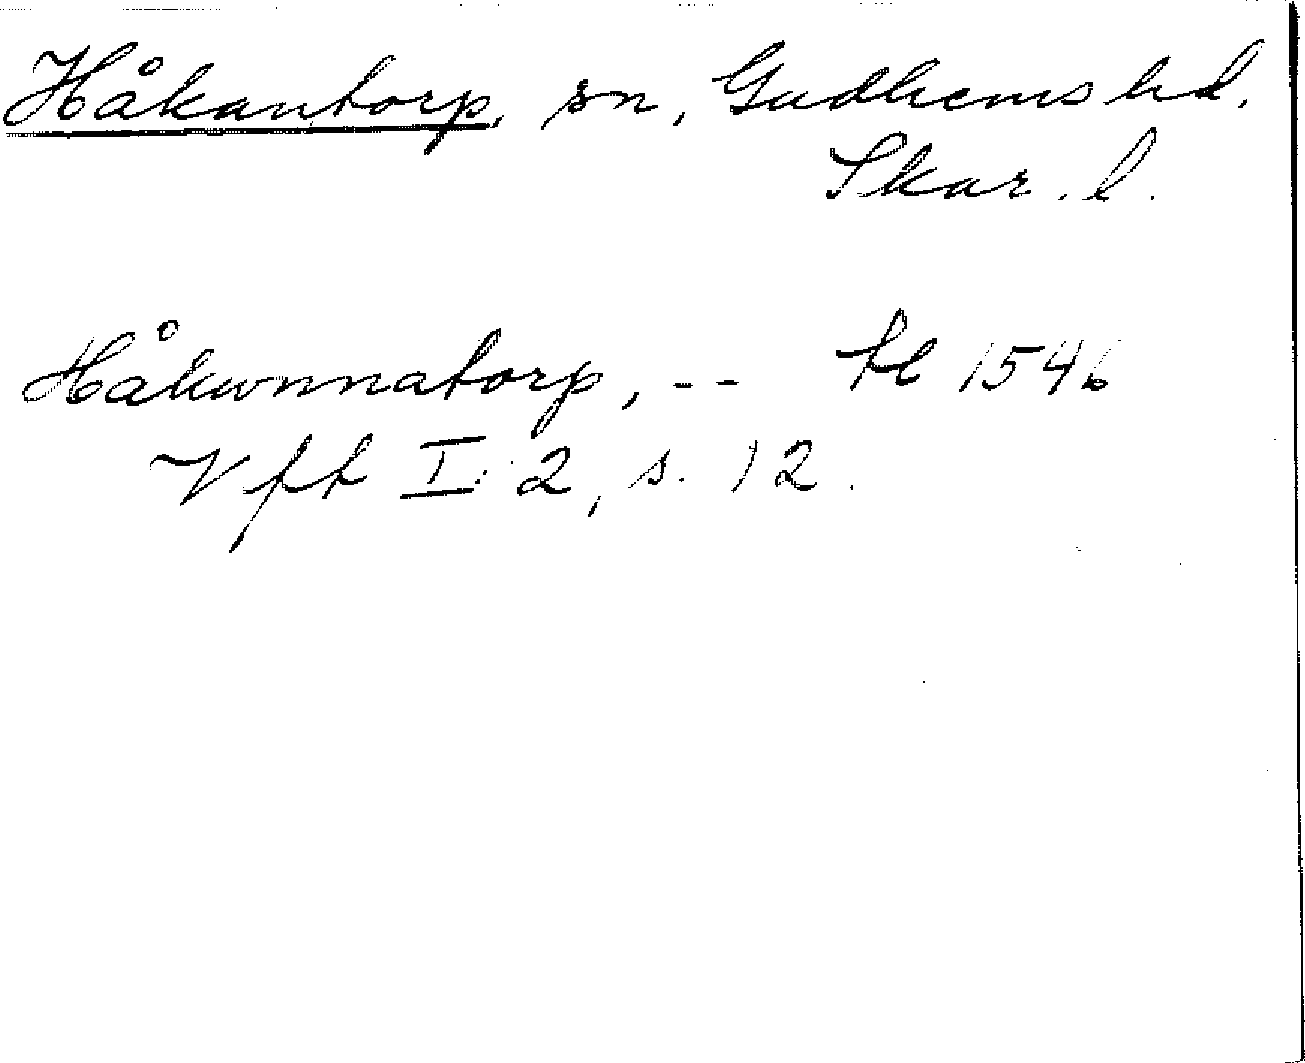 Håkantorp, sn, Gudhems hd.
Skar. l.
Håkwnnatorp, -- tl 1546
Vft I: 2, s. 12.